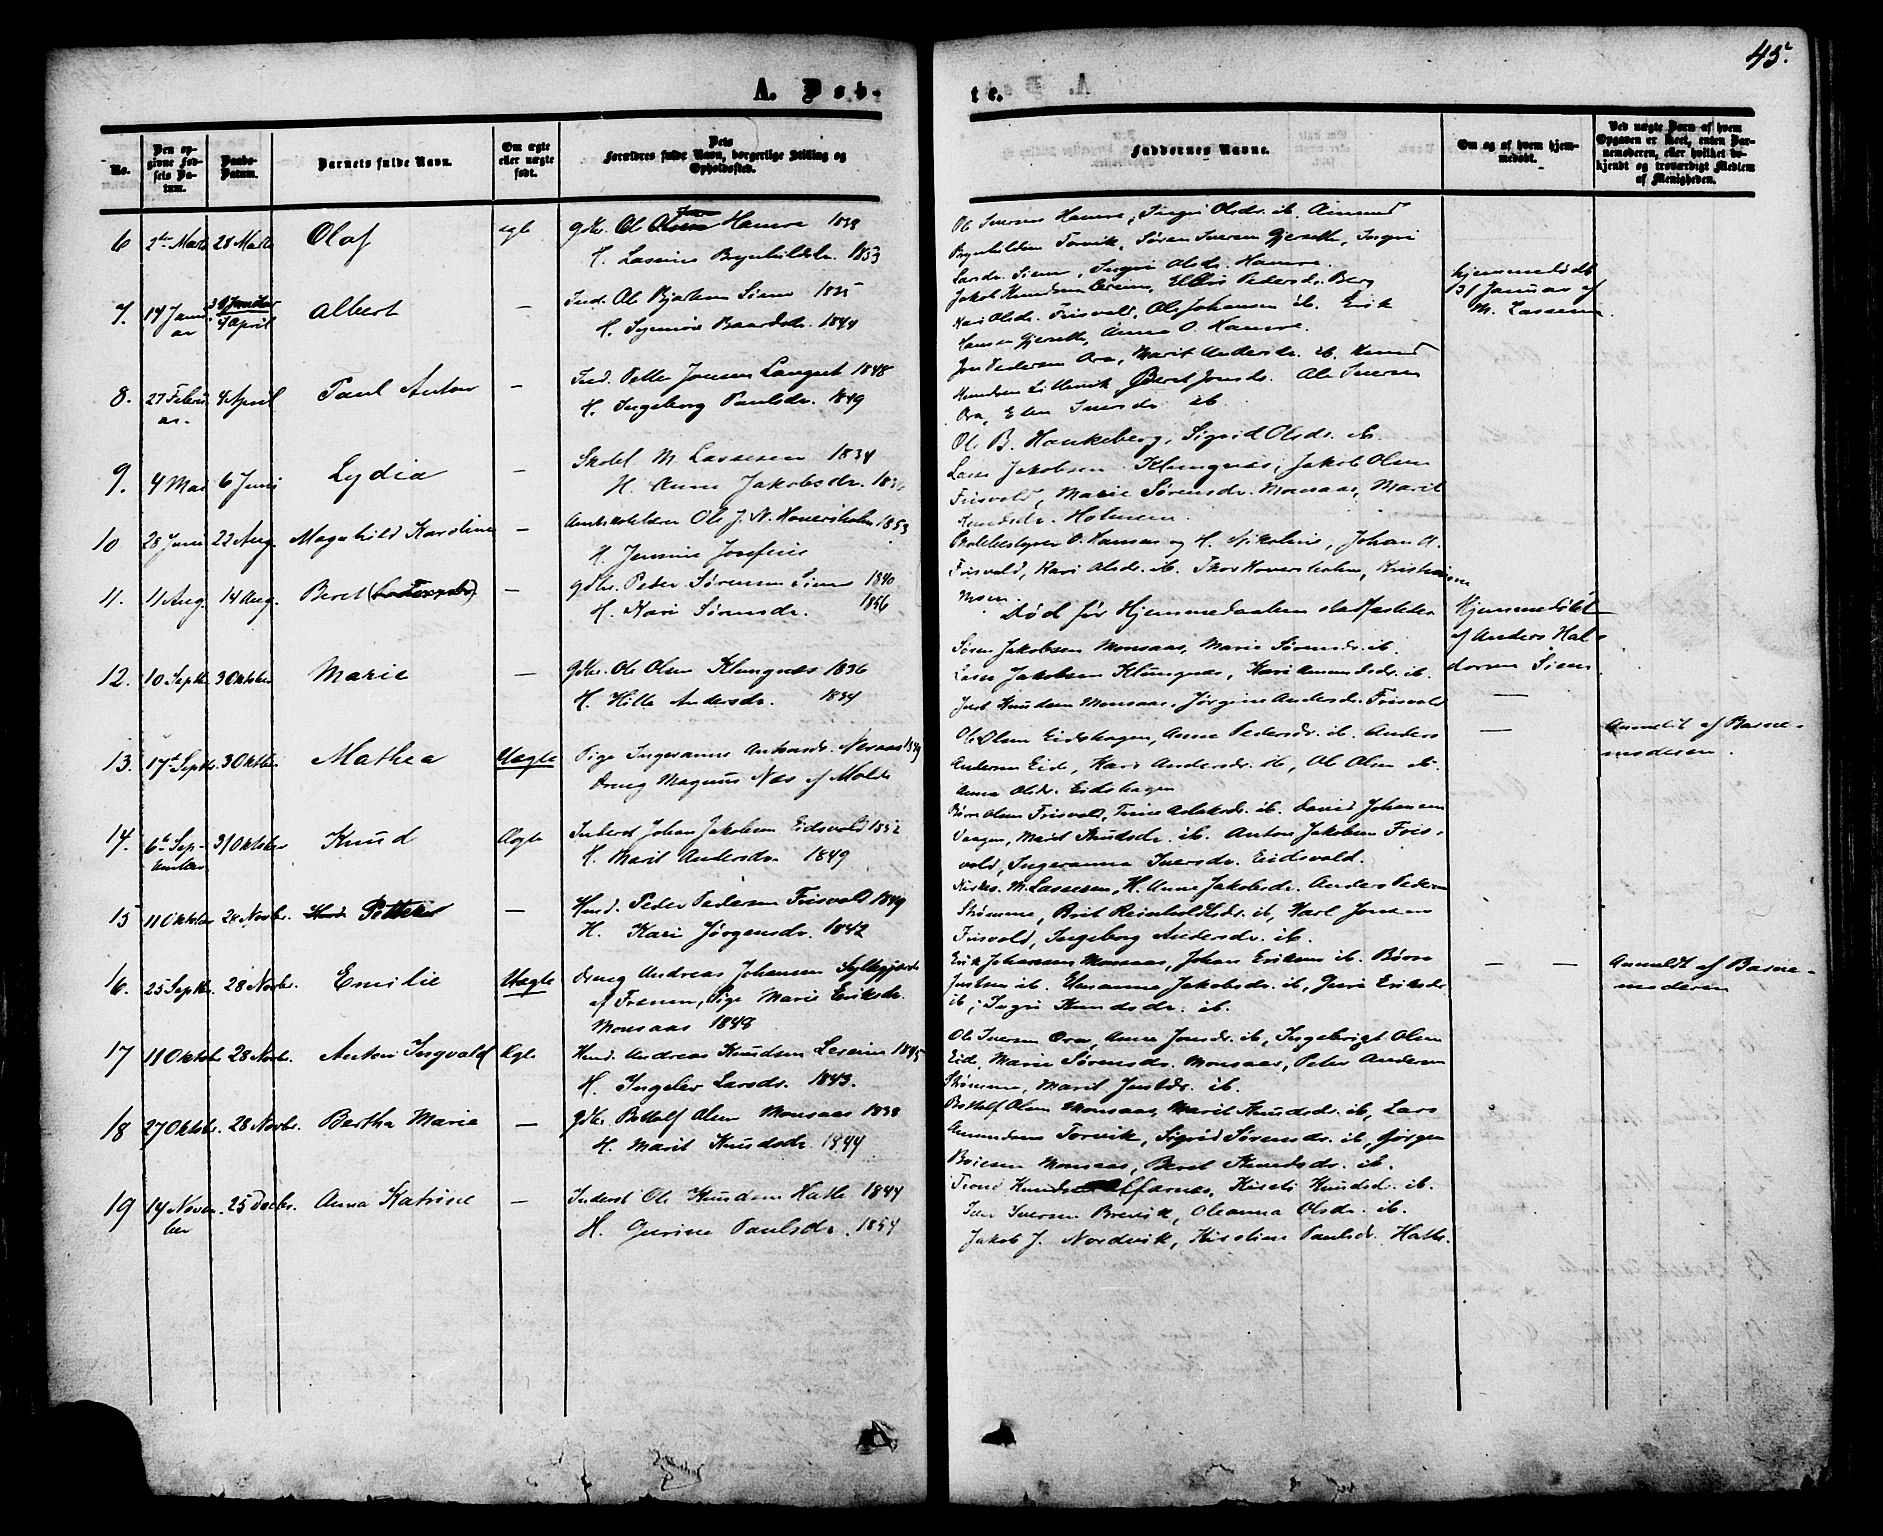 45.
A. Døb-
te.
No.
Den op-
givne Fød-
sels Da-
tum.
Daabs-
Datum.
Barnets fulde Navn.
Om ægte
eller uægte
født.
Dets
Forældres fulde Navn, borgerlige Stilling og
Opholdssted.
Faddernes Navne.
Om og af hvem hjem-
medøbt.
Ved uægte Børn af hvem
Opgaven er skeet, enten Bar-
nemoderen, eller hvilket be-
kjendt og troværdigt Medlem
af Menigheden.
6 2den Marts 28 Marts Olaf ægte gbr. Ole Hamre 1838
H. Lassine Brynhildsdr. 1853
Ole Iversen Hamre, Ingri Olsdr. ib. Amund
Brynhildsen Torvik, Søren Iversen Gjersetle, Ingri
Larsdr. Siem, Ingri Olsdr. Hamre.
7. 14 Janu-
ar 4 April Albert — Ind. Ole Siem 1835
H. Synnøve Baardsdr. 1844
Jakob Knudsen Pedersdr. Berg
Kari Olsdr. Frisvold, Ole Johansen ib. Erik
Hansen Gjersetle, Anna O. Hamre.
hjemmedøbt
31 Januar af
M. Lassesen.
8. 27 Februar
ar. 4 April Paul Anton — Ind. Petter Jonsen Langset 1848
H. Ingeborg Paulsdr. 1849
Jon Pedersen Ora, Marit Andersdr. ib. Knud
Knudsen Lillevik, Beret Jonsdr. Ole Iversen
Ora, Elen Iversdr. ib.
9. 4 Mai 6 Juni Lydia — Skolel. M. Lassesen 1834
H. Anne Jakobsdr.
Ole B. Haukeberg, Sigrid Olsdr. ib.
Lars Jakobsen Klungnæs, Jakob Olsen
Frisvold, Marie Sørensdr. Monsaas, Marit
Knudsdr. Holmem
10 28 Juni 22 Aug. Magnhild Karoline — Amtsskolelærer Ole J. N. Hoversholm 1853
H. Jensine Josefine
Skolebestyrer O. Hansen og H. Nikoline, Johan A.
Frisvold, Kari Olsdr. ib. Thor Hoversholm, Kristianne
Moen.
11. 11 Aug. 14 Aug. Beret — gbr. Peter Sørensen Siem 1840
H. Kari Sørensdr. 1856
Død før Hjemmedaaben stadfæstedes
Hjemmedøbt
af Anders Hal-
dorsen Siem
12. 10 Septbr. 3 Oktober Marie — gbr. Ole Olsen Klungnæs 1836
H. Hille Andersdr. 1834
Søren Jakobsen Monsaas, Marie Sørensdr. ib.
Lars Jakobsen Klungnæs, Kari Amundsdr. ib.
Knudsen Monsaas, Jørgine Andersdr. Frisvold
—
13. 17de Septbr. 3 Oktbr. Mathea Uægte Pige Ingeranna Neraas 1849
Dreng Magnus Næs af Molde
Ole Olsen Eidshagen, Anne Pedersdr. ib. Anders
Andersen Eide, Kari Andersdr. ib, Ole Olsen ib.
Anna Olsdr. Eidshagen
—
Anmeldt af Barne-
moderen.
14. 6te Sep-
tember 31 Oktober Knud Ægte Inderst Johan Jakobsen Eidsvold 1852
H. Marit Andersdr. 1849
Børre Olsen Frisvold, Trine Aslaksdr. ib. David Johansen
Vaagen, Marit Knudsdr. ib. Anton Jakobsen Fris-
vold, Ingeranna Iversdr. Eidsvold.
15 11 Oktober 28 Novbr. Petter — Husm. Peder Pedersen Frisvold 1849
H. Kari Jørgensdr. 1842
M. Lassesen, H. Anne Jakobsdr. Anders Pedersen
Strømme, Brit Reinholdtsdr. ib, Karl Jensen
Frisvold, Ingeborg Andersdr. ib.
16. 25 Septbr. 28 Novbr. Emilie Uægte Dreng Andreas Johansen
af Frænen, Pige Marie Eriksdr.
Monsaas 1848
Erik Johansen Monsaas, Johan Eriksen ib. Børre
Jensen ib. Elusanne Jakobsdr. ib, Guri Eriksdr.
ib, Ingri Knudsdr. ib.
— —
Anmeldt af Barne-
moderen
17 18 Oktober 28 Novbr. Anton Ingvald Ægte Husm. Andreas Knudsen 1845
H. Ingelev Larsdr. 1843.
Ole Iversen Ora, Anne Jonsdr. ib, Ingebrigt Olsen
Eid, Marie Sørensdr. Monsaas, Peter Andersen
Strømme, Marit Jensdr. ib.
18 27 Oktobr. 28 Novbr. Bertha Marie — gbr. Bottolf Olsen Monsaas 1838
H. Marit Knudsdr. 1844
Bottolf Olsen Monsaas, Marit Knudsdr. ib, Lars
Amundsen Torvik, Sigrid Sørensdr. ib, Jørgen
Monsaas, Beret Knudsdr. ib.
19 14 Novem-
ber 25 Decbr. Anna Katrine — Inderst Ole Knudsen Hatle 1844
H. Gurine Paulsdr. 1854
Trond Knudsen Alfarnes, Kirsti Knudsd. ib.
Iver Iversen Brevik, Oleanna Olsdr. ib.
Jakob J. Nordvik, Kirstine Paulsdr. Hatle.